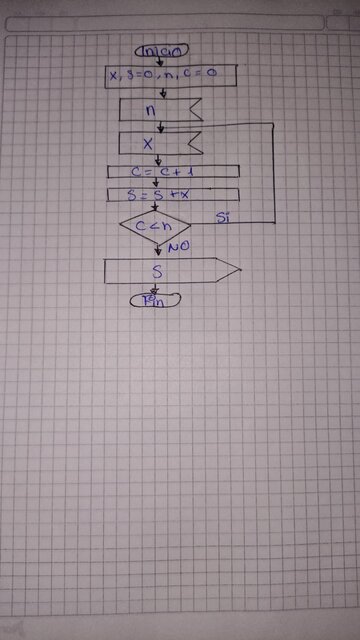 Inicio
x, s=0, n, c=0
n
X
C = C + 1
S = S + X
Si
C < n
NO
S
Fin